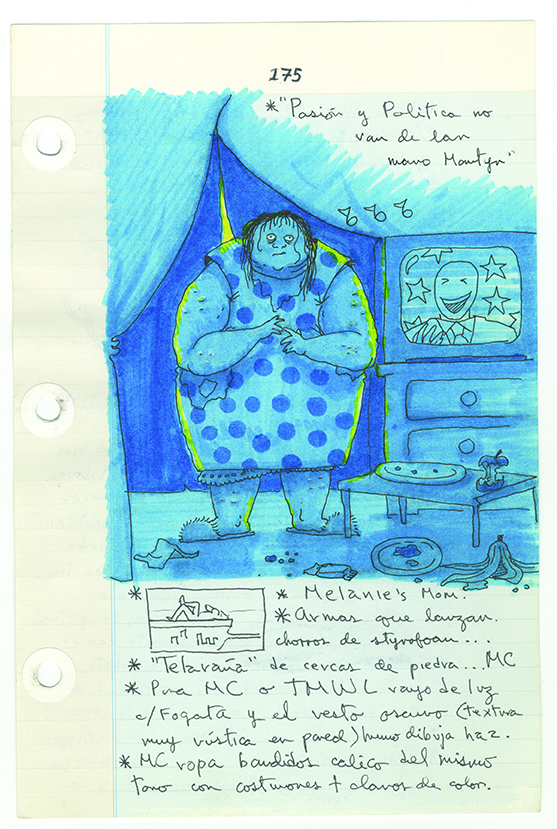 175
*"Pasión y Politica no
van de la
mano Martyn"
* Melanie's Mom.
* Armas que lanzan
chorros de styrofoam...
* "Telaraña" de cercas de piedra...MC
* Para MC o TMWL rayo de luz
c/Fogata y el resto oscuro (textura
muy rústica en pared) humo dibuja haz.
* MC ropa bandidos calico del mismo
tono con costurones + clavos de color.